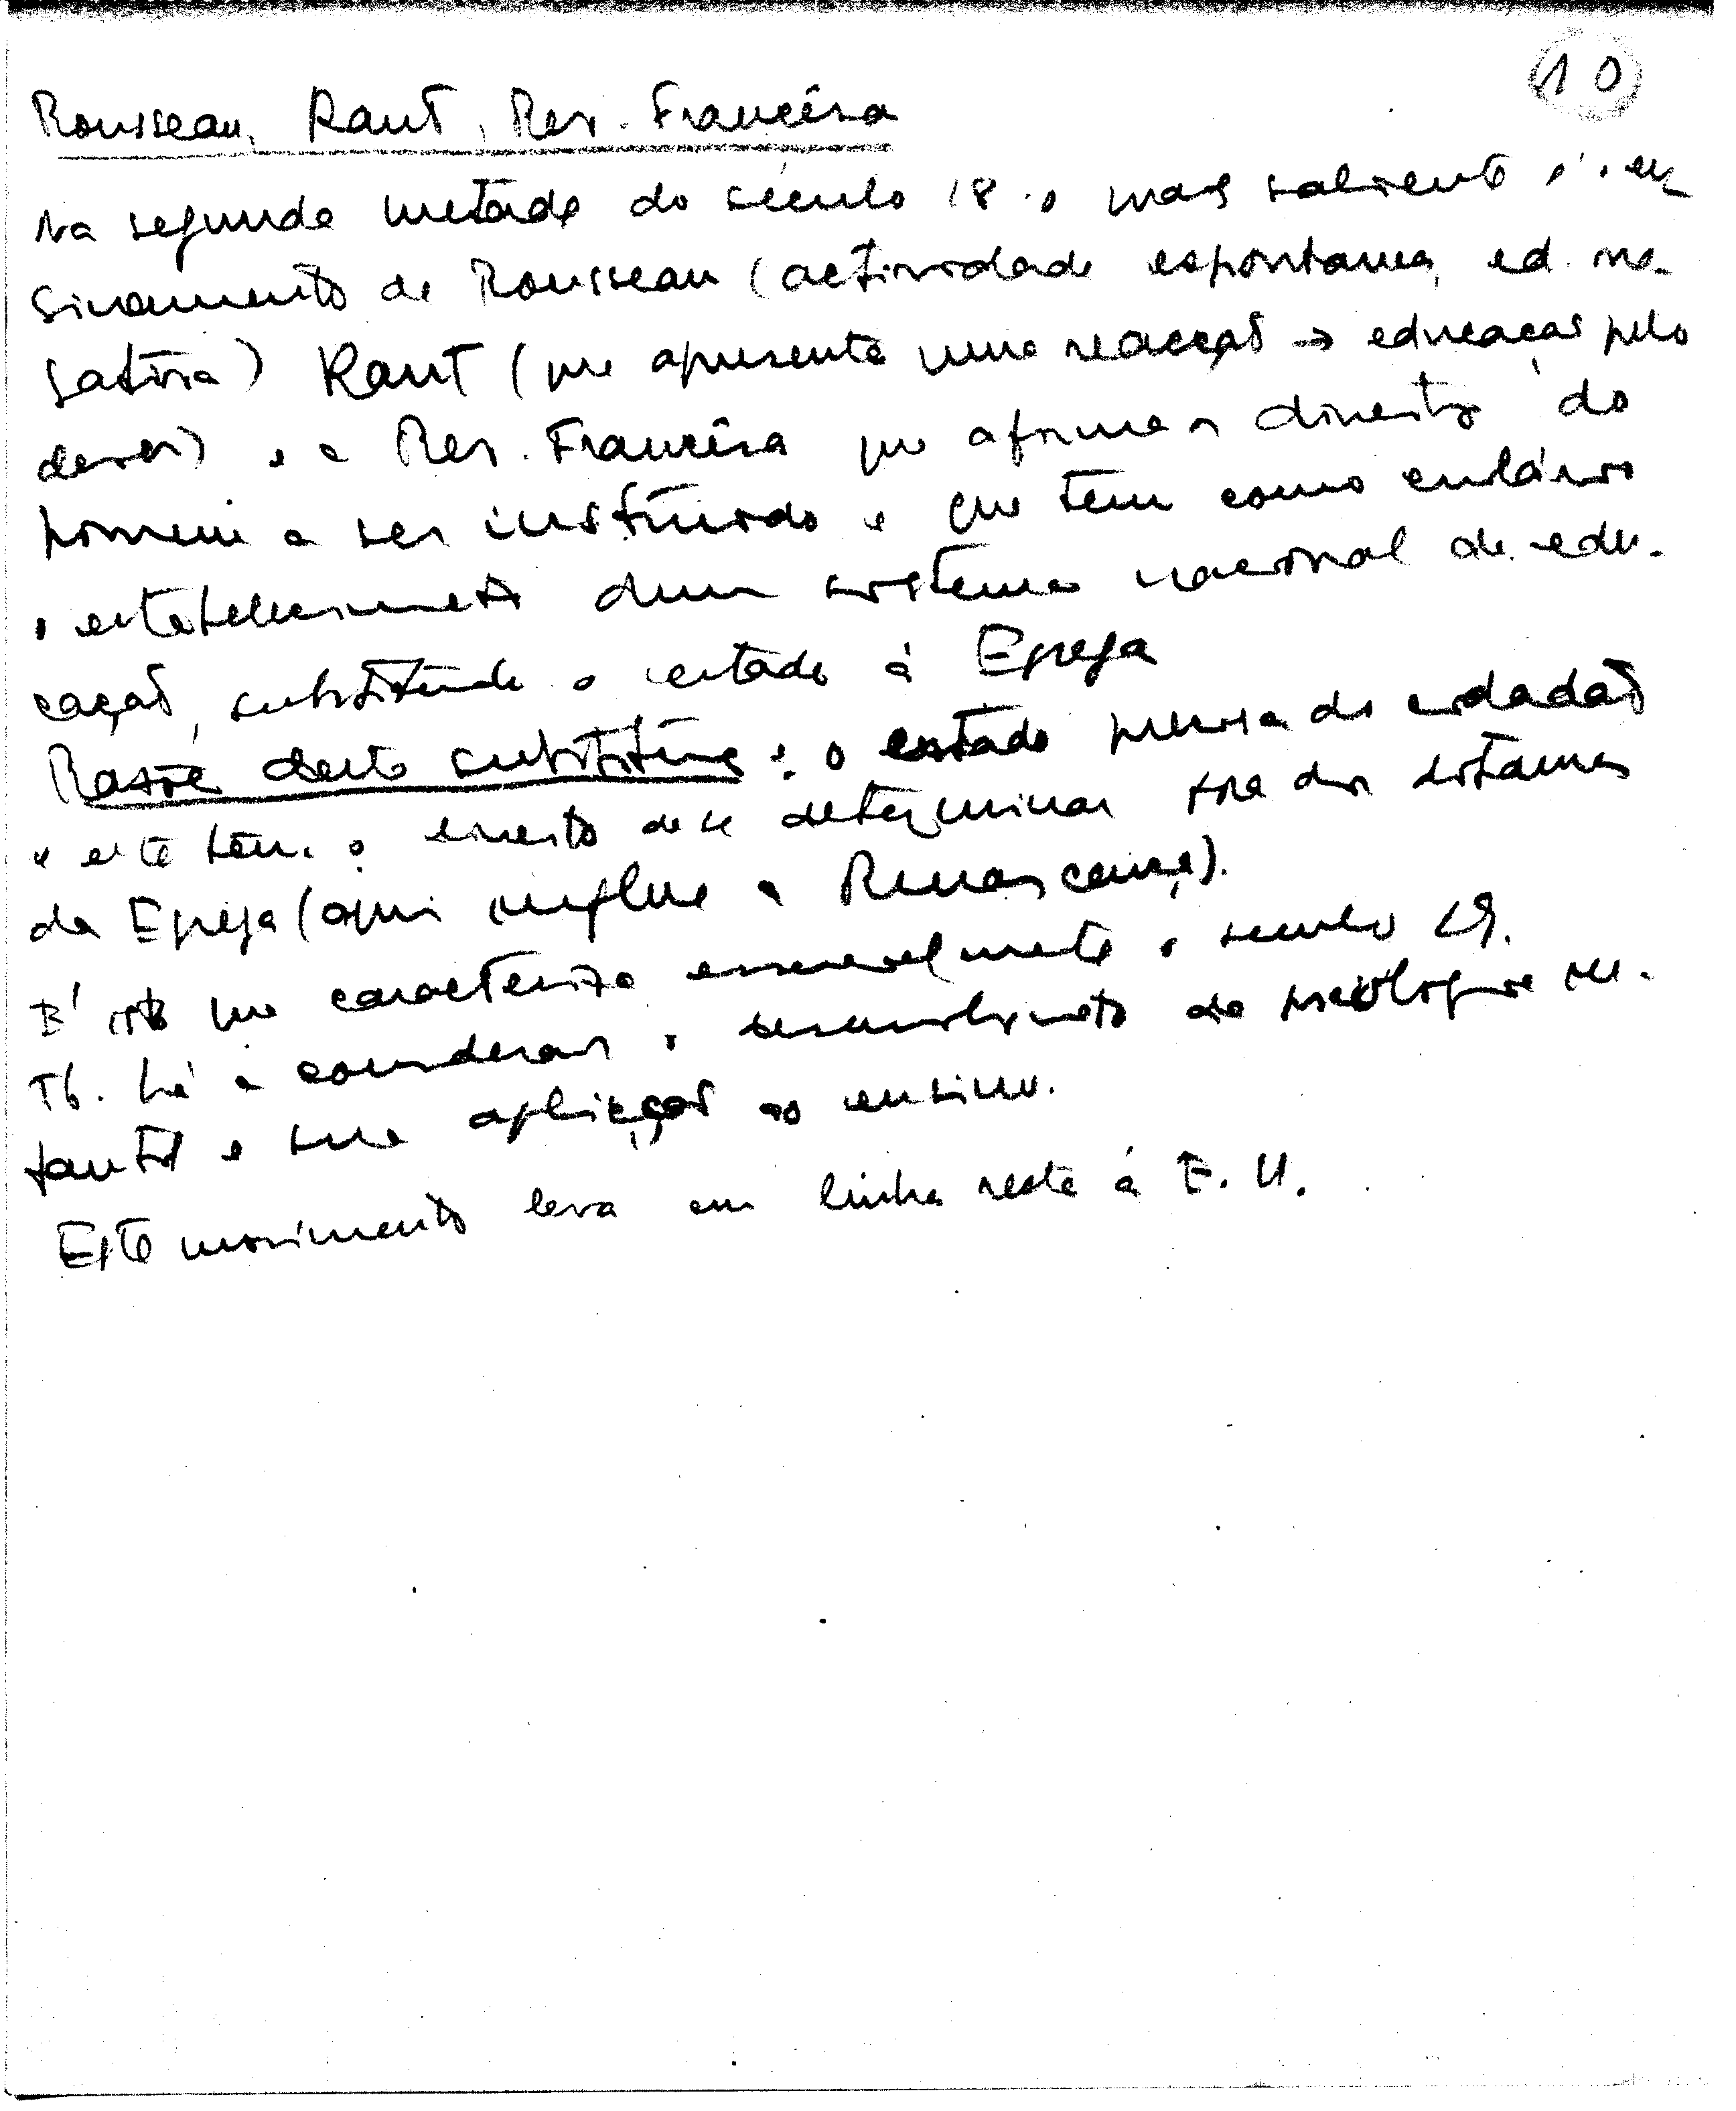 10
Rousseau, Kant, Rev. Francêsa
Na segunda metade do século 18 o mais saliente é o en-
sinamento de Rousseau (actividade espontanea, ed. ne-
gativa) Kant (que apresenta uma reacção → educação pelo
dever) e a Rev. Francêsa que afirma o direito do
homem a ser instruido e que tem como corolário
o estabelecimento dum sistema nacional de edu-
cação, substituindo o estado à Egreja
Razão desta substituição: o estado precisa do cidadão
e este tem o direito de se determinar fora dos ditames
da Egreja (aqui influe a Renascença).
É isto que caracteriza essencialmente o seculo 19.
Tb. há a considerar o desenvolvimento da psicologia in-
fantil e sua aplicação ao ensino.
Este movimento leva em linha recta á E. U.